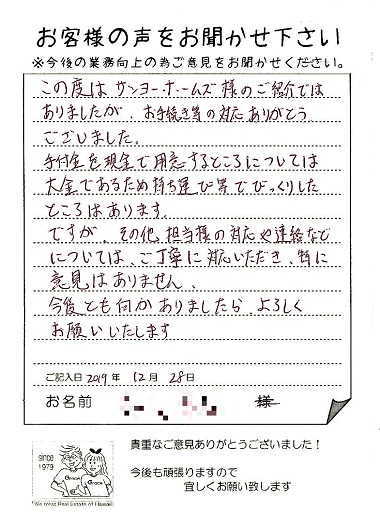 お客様の声をお聞かせ下さい
※今後の業務向上の為ご意見をお聞かせください。
この度は サンヨーホームズ様のご紹介では
ありましたが、お手続き等の対応ありがとう
ございました。
手付金を現金で用意するところについては
大金であるため持ち運び等でびっくりした
ところはあります。
ですが、その他、担当様の対応や連絡など
については、ご丁寧に対応いただき、特に
意見はありません。
今後とも何かありましたら、よろしく
お願いいたします
ご記入日 2019 年 12 月 28 日
お名前 様
since
1979
Grace
Grace
We treat Real Estate of Hawaii
貴重なご意見ありがとうございました！
今後も頑張りますので
宜しくお願い致します